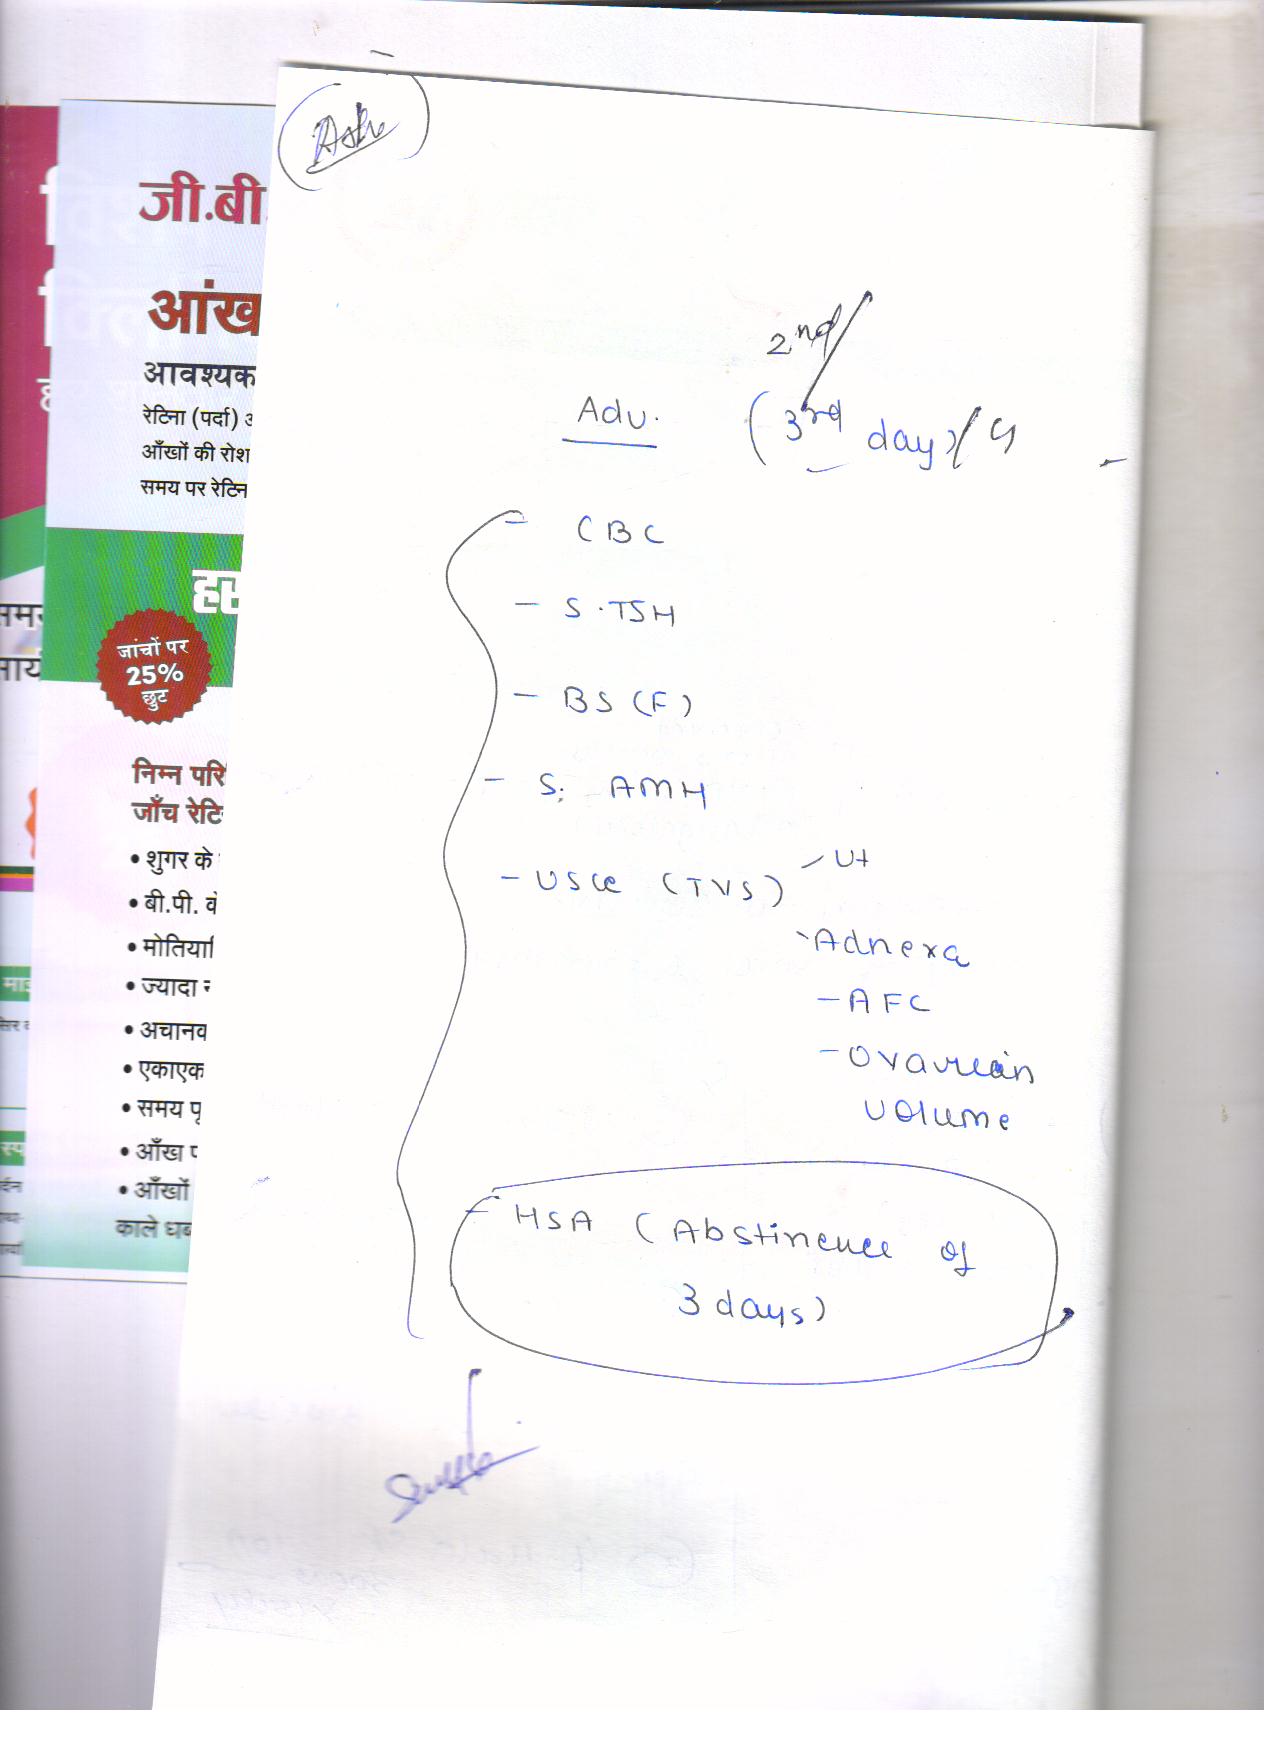 Ash
2nd/
Adv. (3rd day)/4
- CBC
- S.TSH
- BS (F)
- S. AMH
- USG (TVS) - Ut
- Adnexa
- AFC
- Ovarian
volume
- HSA (Abstinence of
3 days)
जी.बी.
आंख
आवश्यक
रेटिना (पर्दा)
आँखों की रोश
समय पर रेटिन
जांचों पर
25%
छुट
निम्न परि
जाँच रेटि
• शुगर के
• बी.पी. के
• मोतिया
• ज्यादा
• अचानक
• एकाएक
• समय पू
• आँख प
• आँखों
काले धब्